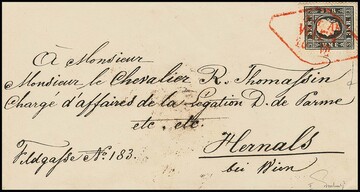 À Monsieur
Monsieur le Chevalier R. Thomassin
Chargé d'affaires de la Légation D. de Parme
etc. etc.
Hernals
Feldgasse No. 183.
bei Wien